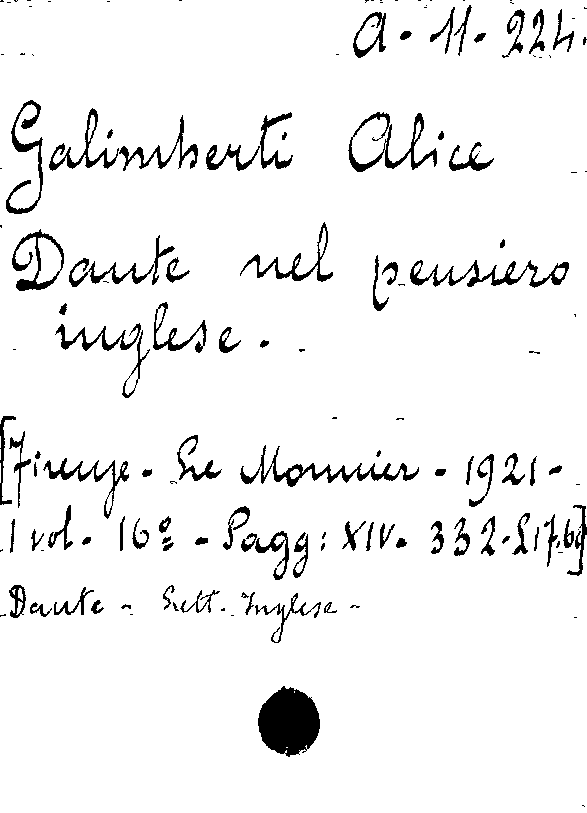 A. 11. 224.
Galimberti Alice
Dante nel pensiero
inglese.
[Firenze - Le Monnier - 1921 -
1 vol. 16º - Pagg: XIV. 332. L17.60]
Dante - Lett. Inglese -